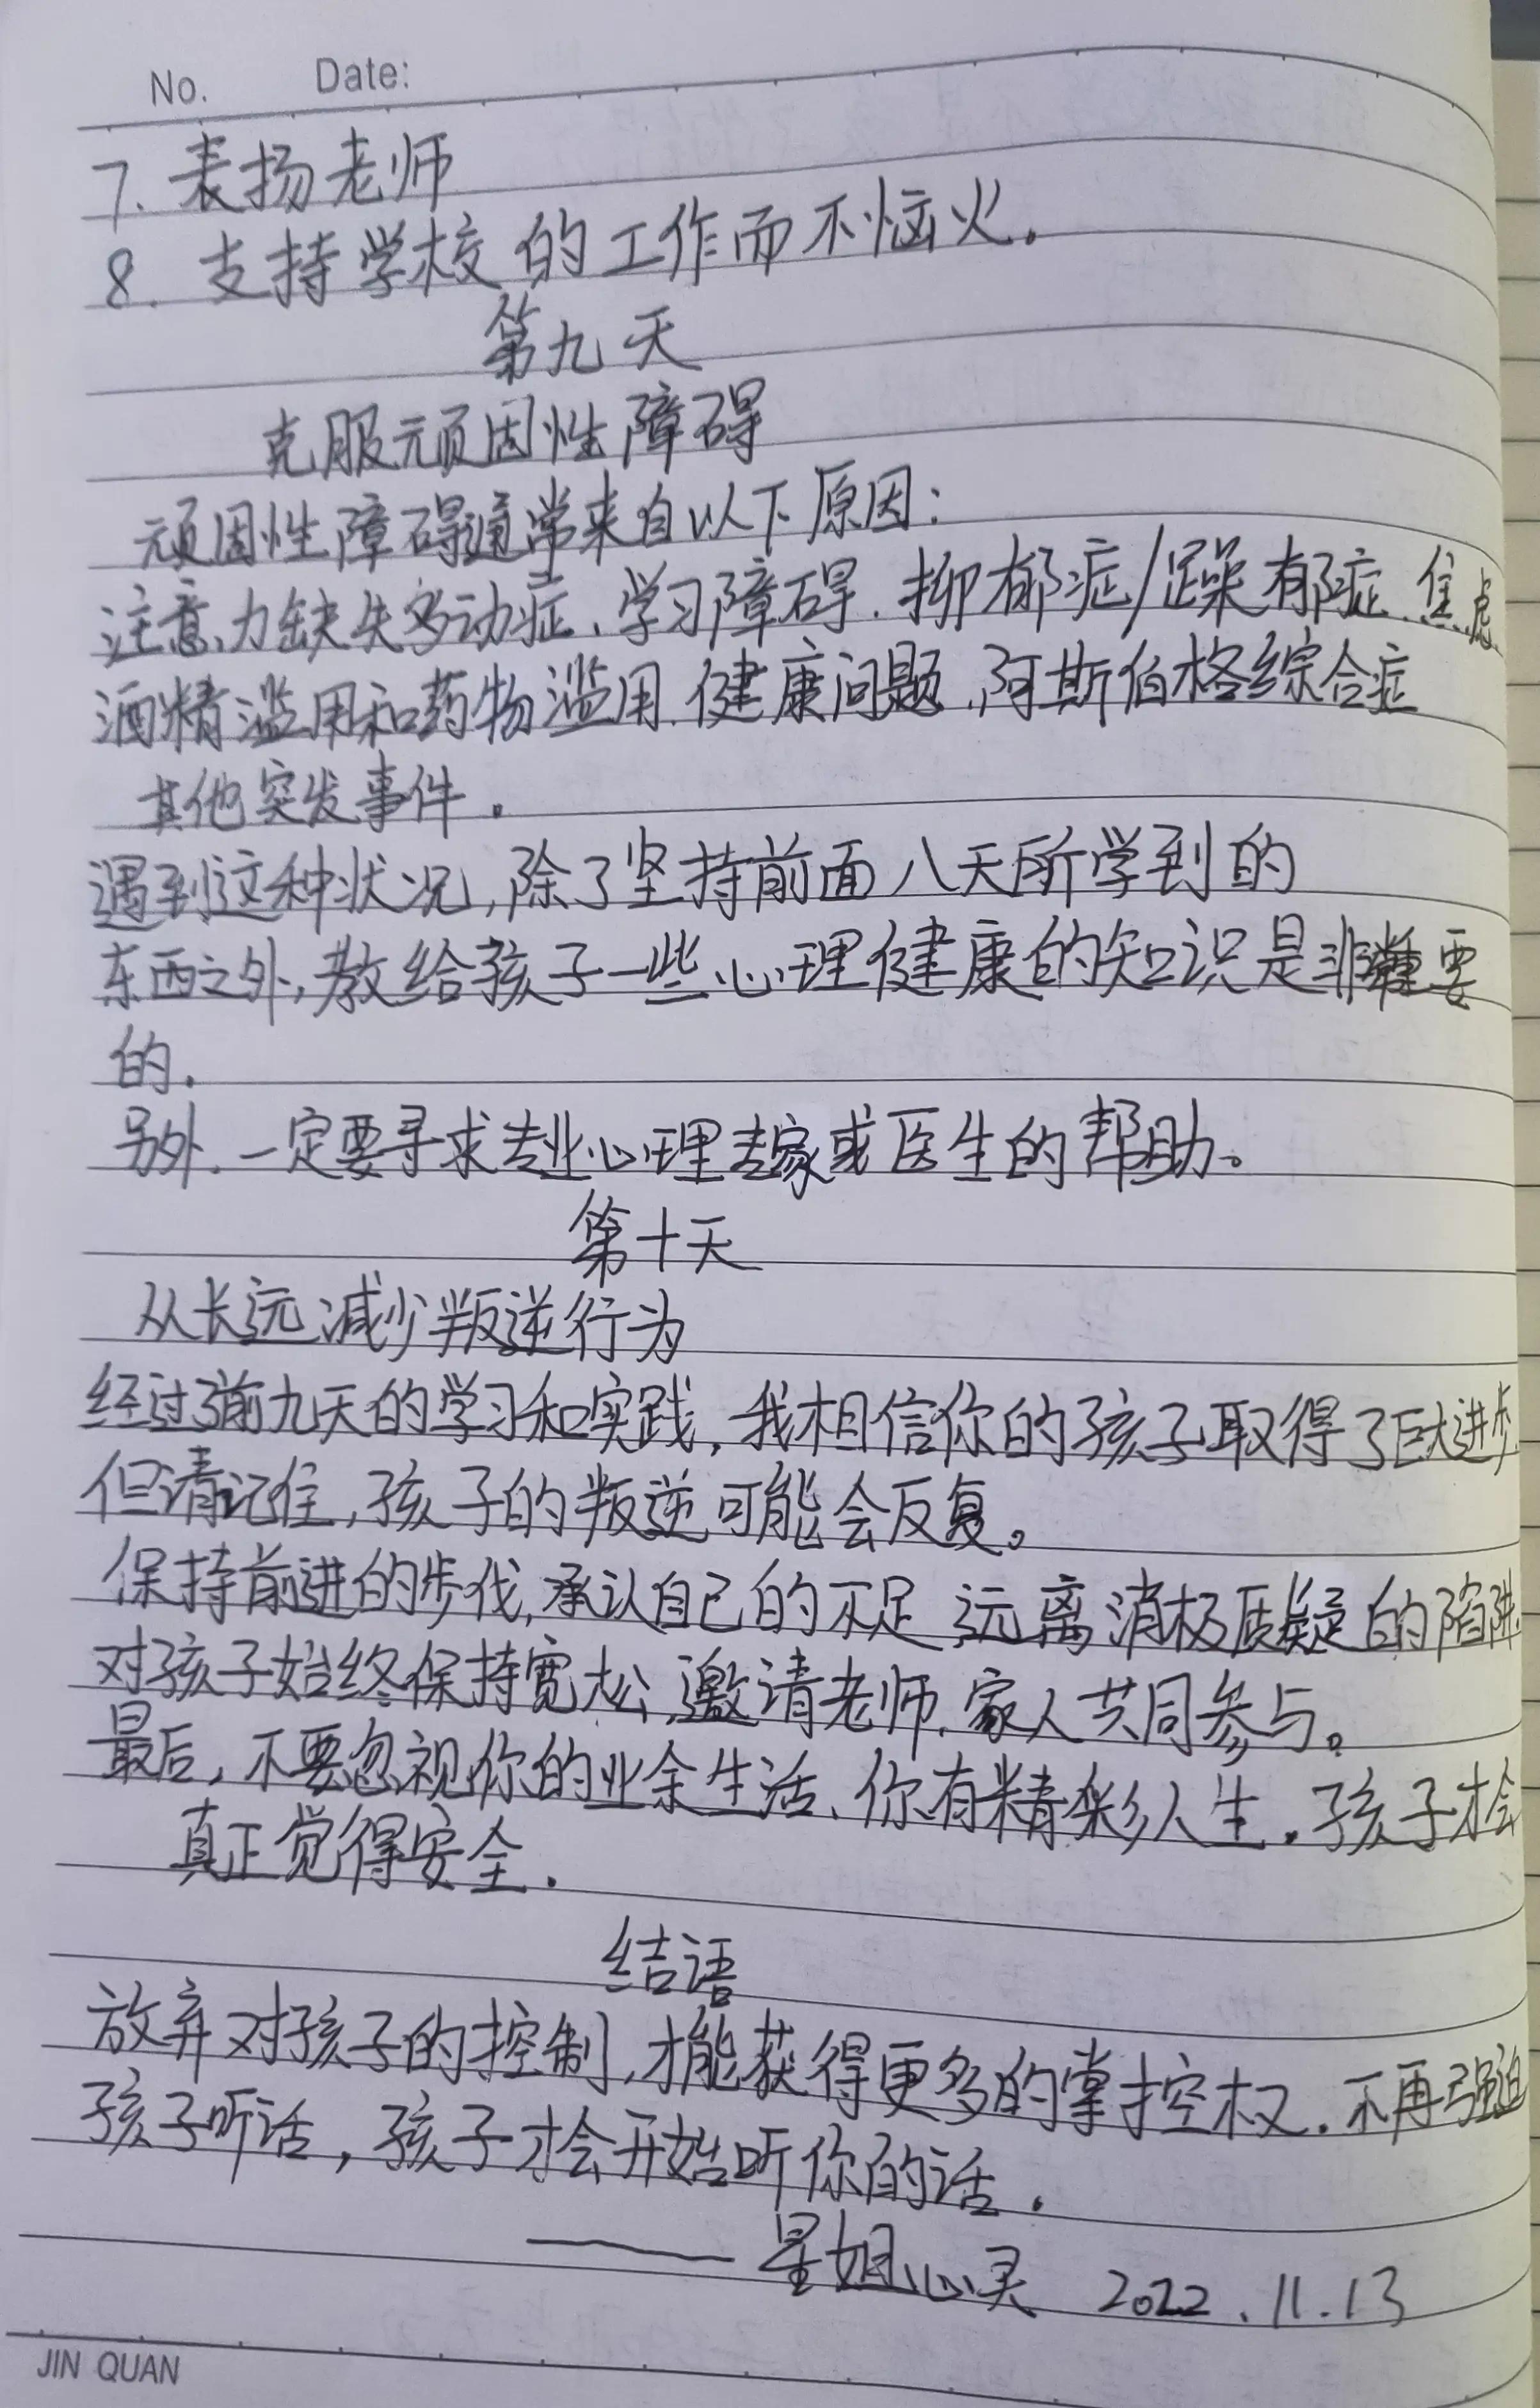 No. Date:
7. 表扬老师
8. 支持学校的工作而不恼火。
第九天
克服顽固性障碍
顽固性障碍通常来自以下原因：
注意力缺失多动症、学习障碍、抑郁症/躁郁症、焦虑
酒精滥用和药物滥用、健康问题、阿斯伯格综合症
其他突发事件。
遇到这种状况，除了坚持前面八天所学到的
东西之外，教给孩子一些心理健康的知识是非常重要
的.
另外.一定要寻求专业心理专家或医生的帮助。
第十天
从长远减少叛逆行为
经过了前九天的学习和实践，我相信你的孩子取得了巨大进步
但请记住，孩子的叛逆可能会反复。
保持前进的步伐，承认自己的不足、远离消极质疑的陷阱
对孩子始终保持宽松、邀请老师、家人共同参与。
最后，不要忽视你的业余生活、你有精彩人生。孩子才会
真正觉得安全.
结语
放弃对孩子的控制，才能获得更多的掌控权.不再强迫
孩子听话，孩子才会开始听你的话.
——星姐心灵 2022.11.13
JIN QUAN